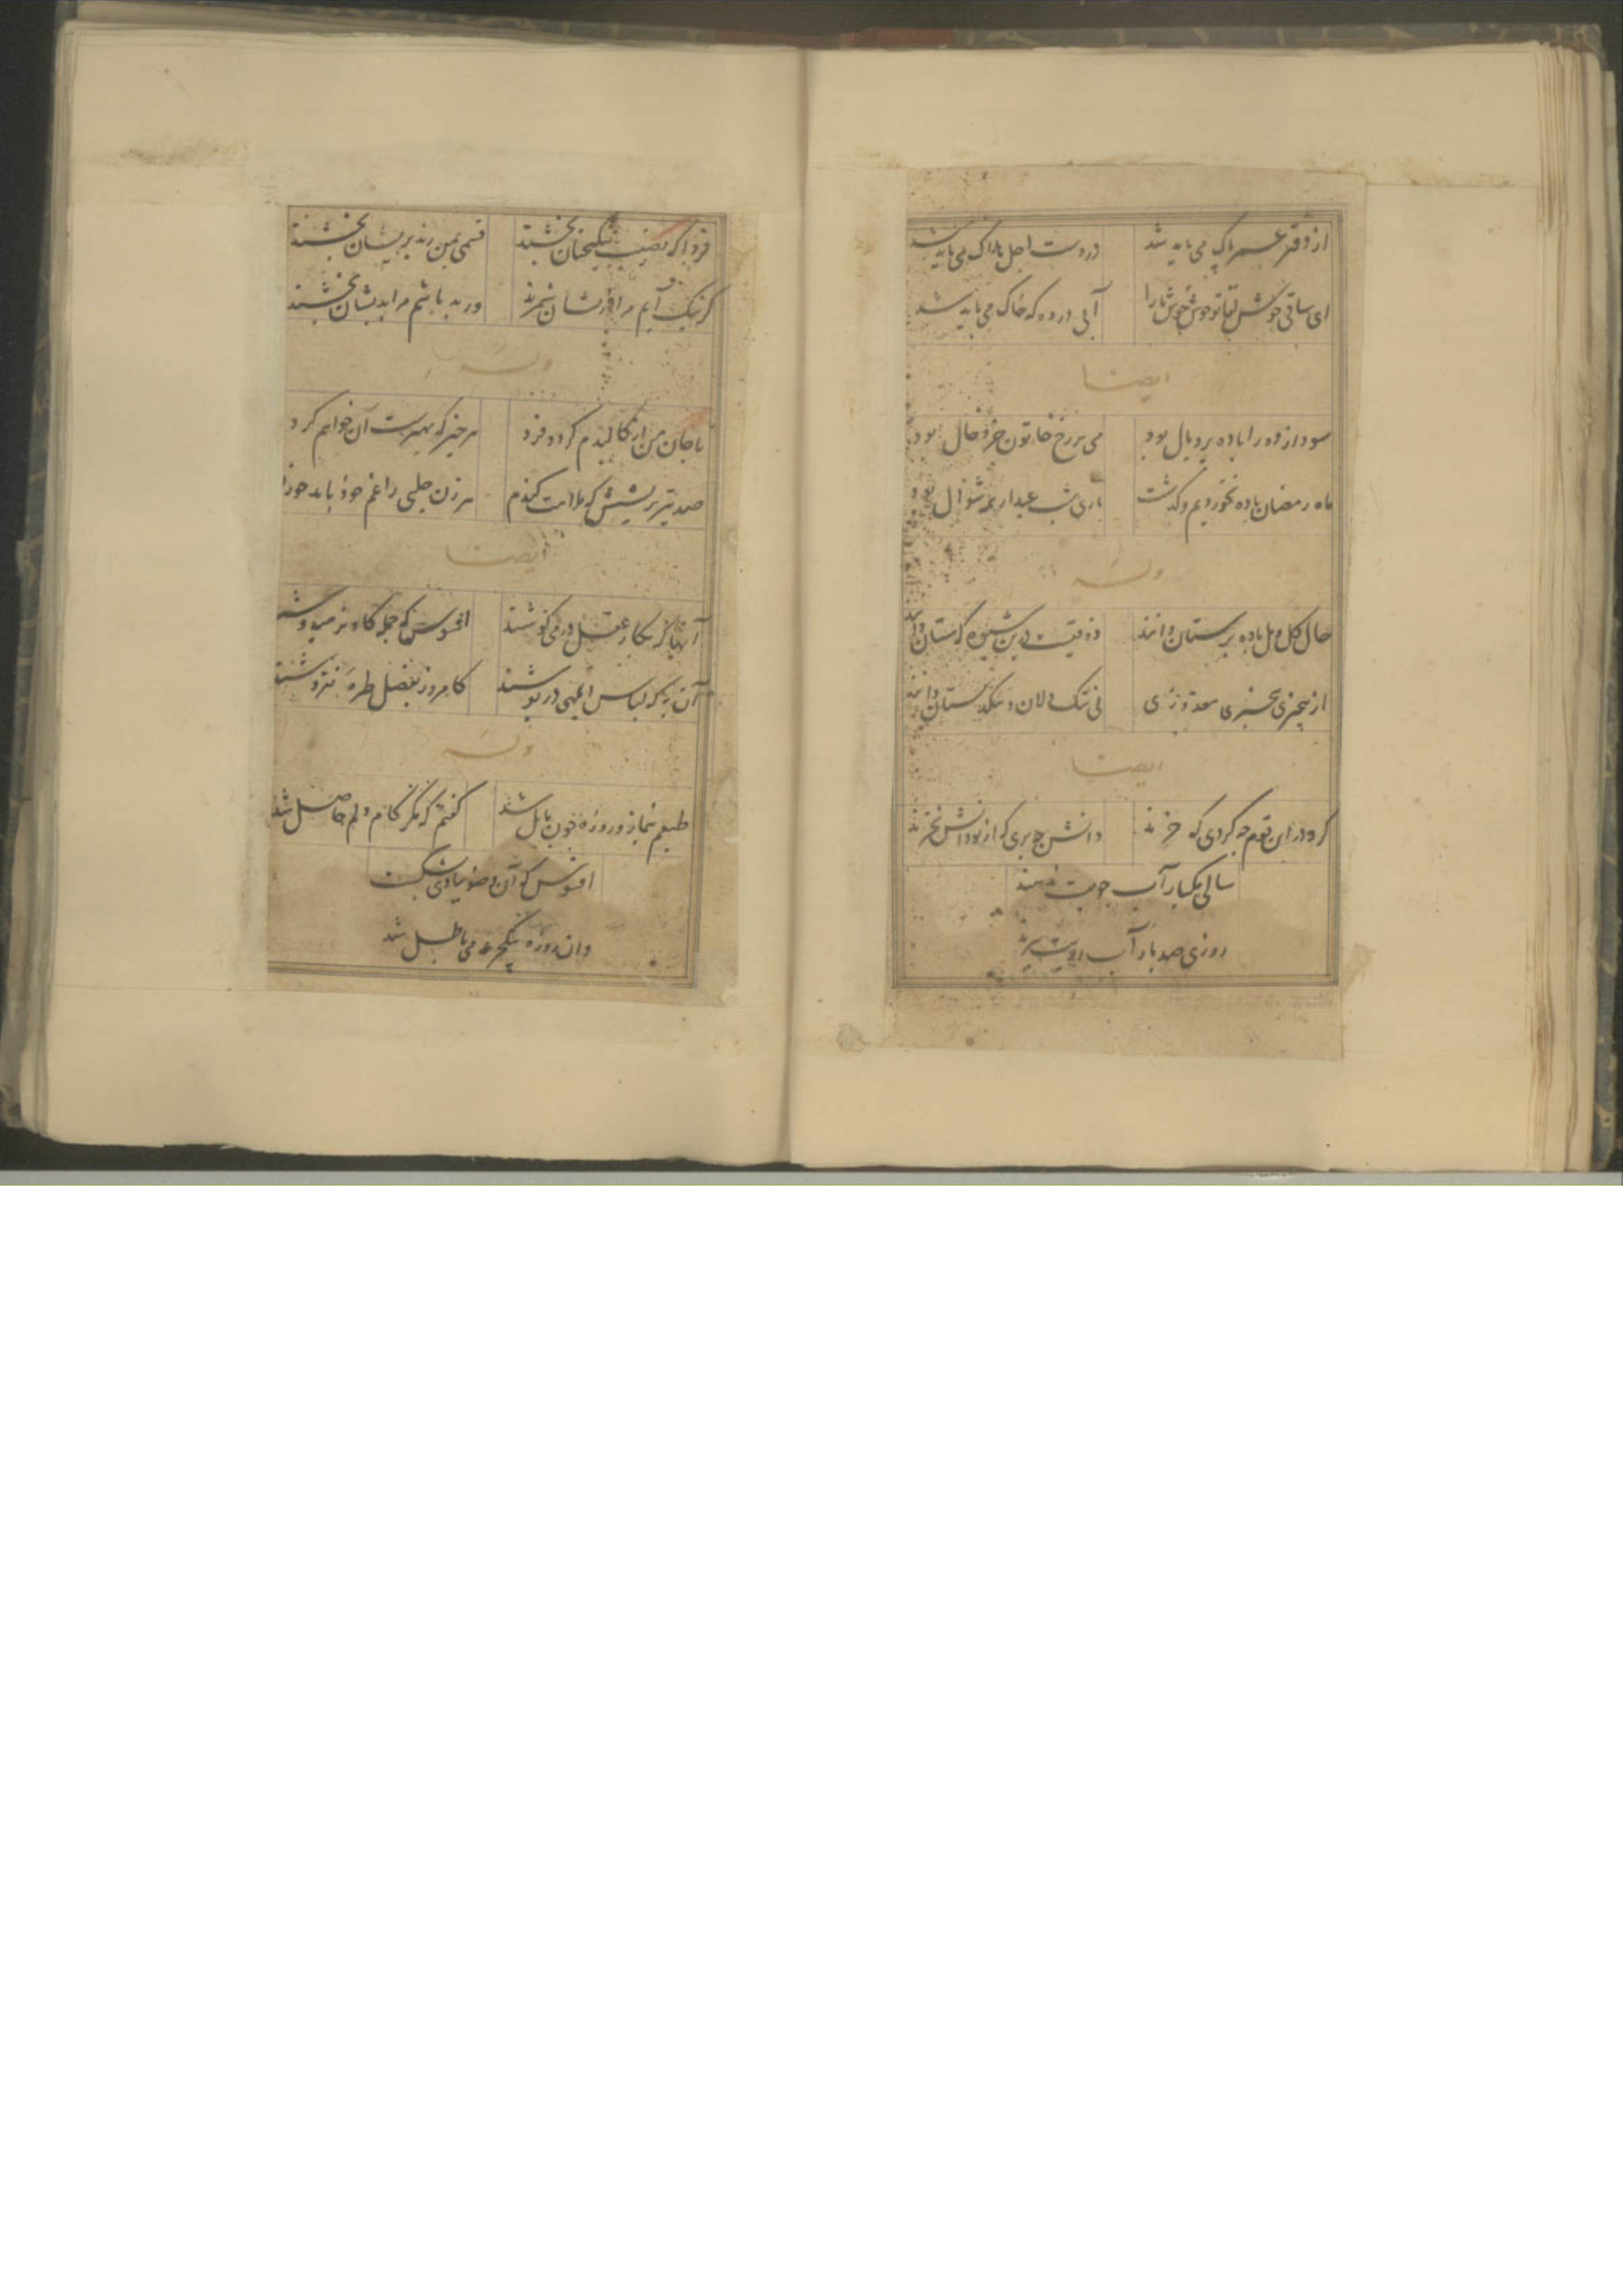 از دفتر عمر پاک می باید شد
در دست اجل هلاک می باید شد
ای ساقی خوش لقا تو خوش خوش ما را
آبی در ده که خاک می باید شد
ایضا
سودازده را باده پر و بال بود
می بر رخ خاتون خرد خال بود
ماه رمضان باده نخوردیم و گذشت
باری شب عید از مه شوال بود
وله
حال گل و مل باده پرستان دانند
ذوقیست درین شیوه که مستان دانند
از بیخبری بیخبری معذوری
نی تنک دلان و تنکدستان دانند
ایضا
گرد در این قوم چه گردی که خرند
دانش چه بری که از تو دانش نخرند
سالی یکبار آب جویت ندهند
روزی صد بار آب رویت ببرند
فردا که نصیب نیکبختان بخشند
قسمی بمن رند پریشان بخشند
گر نیک آیم مرا از ایشان شمرند
ور بد باشم مرا بدیشان بخشند
وله
تا جان من از کالبدم گردد فرد
هر چیز که بهترست آن خواهم کرد
صد تیز بریشش که ملامت کندم
هر زن جلبی را غم خود باید خورد
ایضا
آنها که بکار عقل در می کوشند
افسوس که جمله گاو نر میدوشند
آن به که لباس ابلهی در پوشند
کامروز بفضل طره نفروشند
وله
طبعم بنماز و روزه چون مایل شد
گفتم که مگر کام دلم حاصل شد
افسوس که آن وضو ببادی بشکست
وان روزه بنیم جرعه می باطل شد